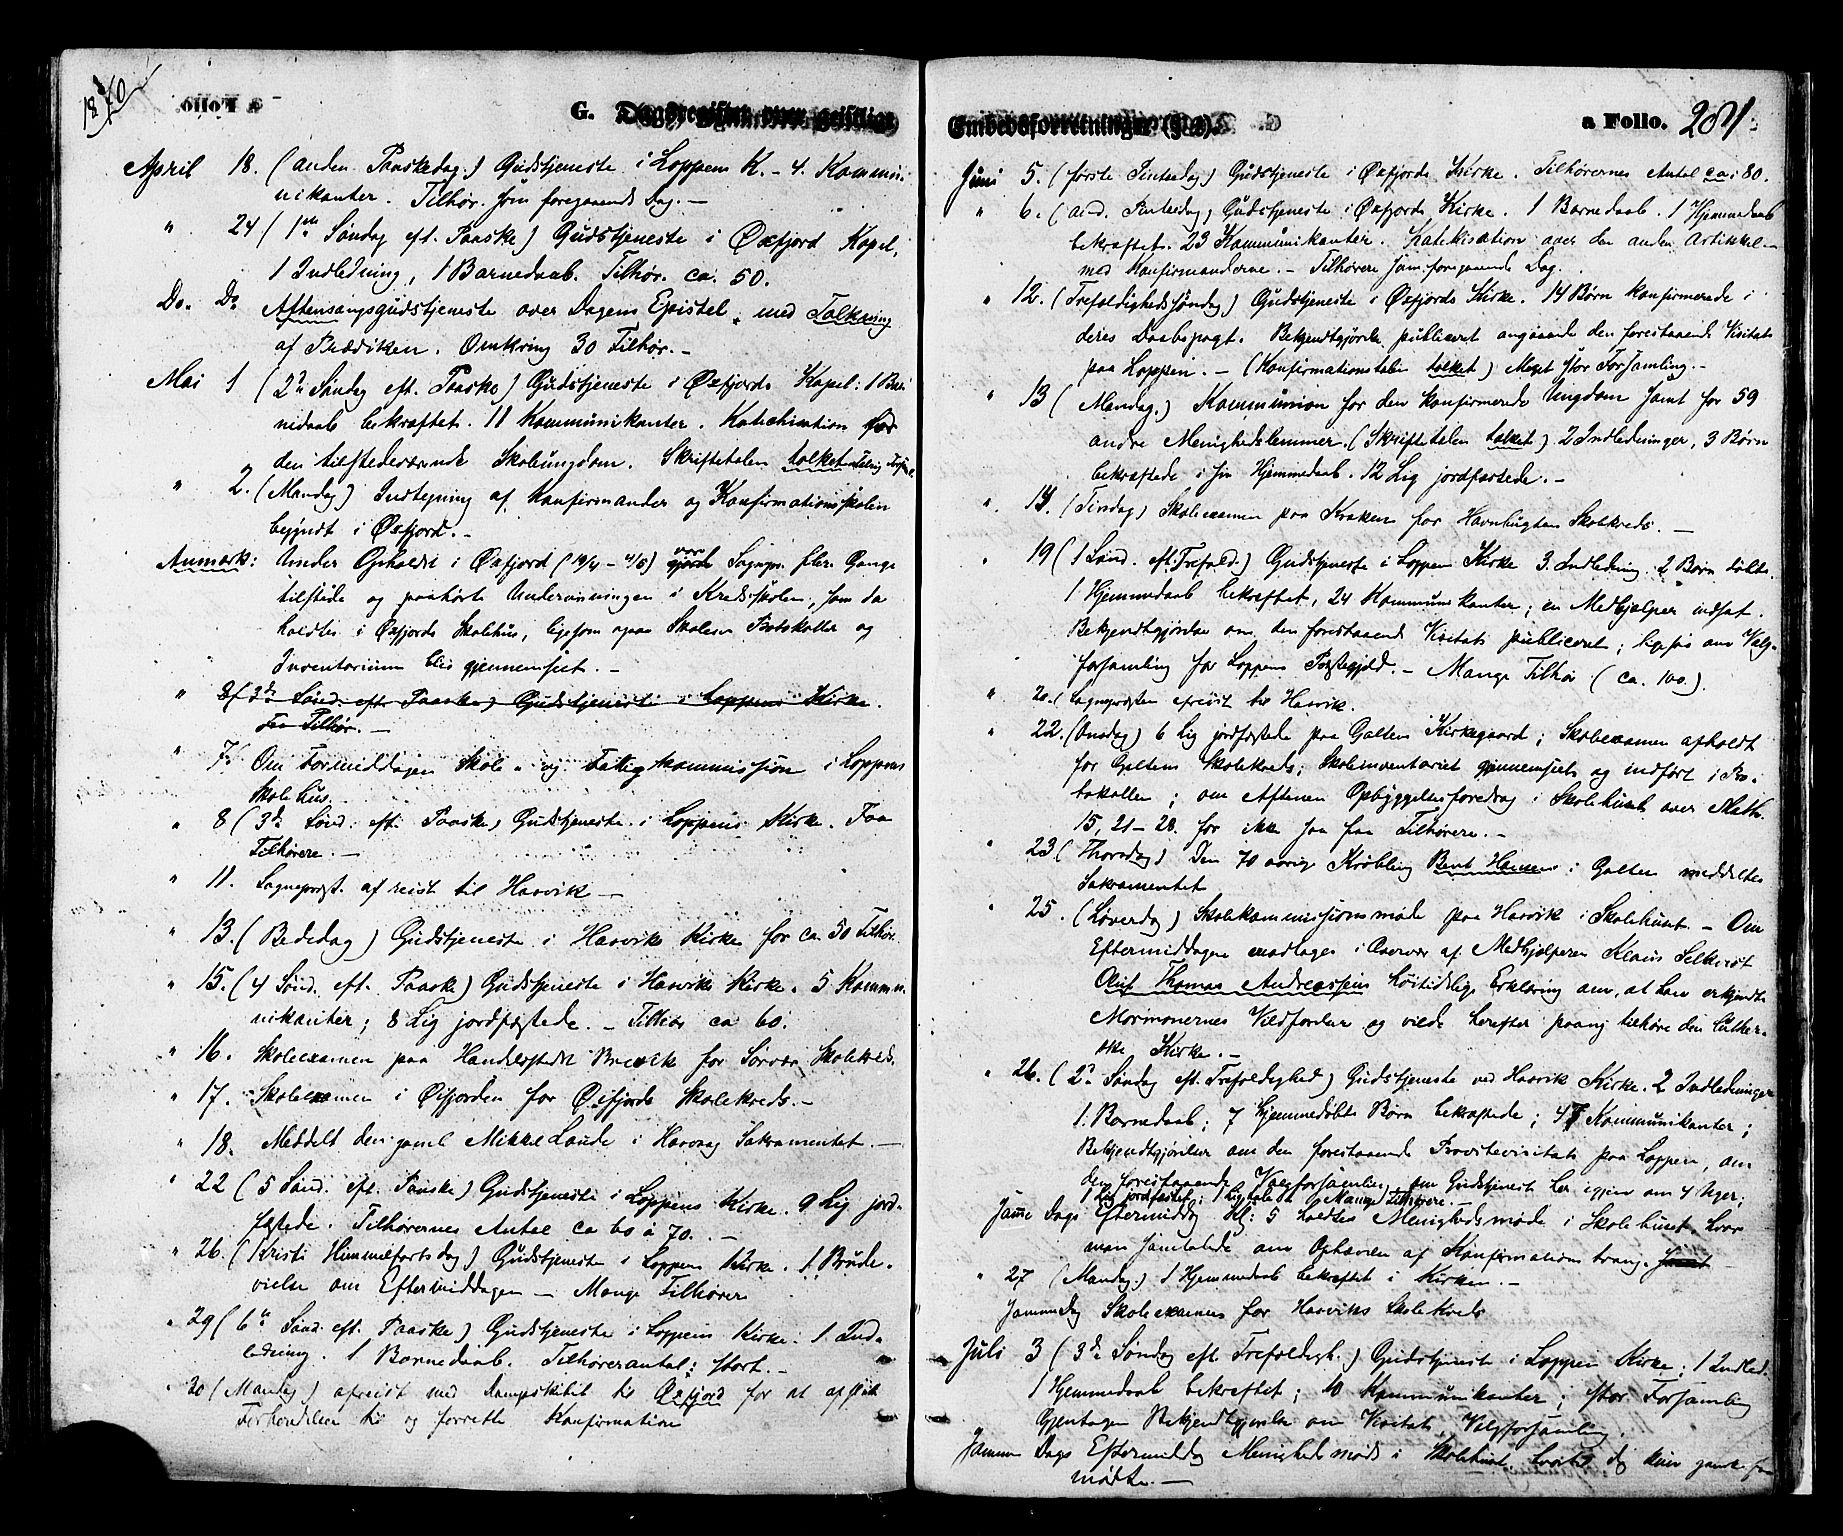 1870
G. Dagsregister over geistlige
April 18. (anden Paaskedag.) Gudstjeneste i Loppens K. - 4. Kommu-
nikanter. Tilhør. som foregaaende Dag. -
" 24 (1ste Søndag eft. Paaske) Gudstjeneste i Øxfjord Kapel,
1 Indledning, 1 Barnedaab. Tilhør. ca. 50.
Do. Do. Aftensangsgudstjeneste over Dagens Epistel, med Tolkning
af Prædiken. Omkring 30 Tilhør. -
Mai 1 (2den Søndag eft. Paaske) Gudstjeneste i Øxfjords Kapel: 1 Bar-
nedaab bekræftet. 11 Kommunikanter. Katechisation for
den tilstedeværende Skoleungdom. Skriftetalen tolket
" 2. (Mandag) Indtegning af Konfirmander og Konfirmationsskolen
begyndt i Øxfjord. -
Anmærk: Under Opholdet i Øxfjord (19/4 - 4/5) var Sognepr. flere Gange
tilstede og paahørte Undervisningen i Kredsskolen, som da
holdtes i Øxfjords Skolehus, ligesom ogsaa Skolens Protokoller og
Inventarium blev gjennemseet. -
" 8 (3de Sønd. eft. Paaske) Gudstjeneste i Loppens Kirke.
Faa Tilhør. -
" 7. Om Formiddagen Skole- og Fattigkommission i Loppens
Skolehus.
" 8 (3de Sønd. eft. Paaske) Gudstjeneste i Loppens Kirke. Faa
Tilhørere. -
" 11. Sognepræst. afreist til Hasvik -
" 13. (Bededag) Gudstjeneste i Hasviks Kirke for ca. 50 Tilhør.
" 15. (4 Sønd. eft. Paaske) Gudstjeneste i Hasviks Kirke. 5 Kommu-
nikanter; 8 Lig jordfæstede. - Tilhør ca 60.
" 16. Skoleexamen paa Handelsstedet Breivik for Sørvær Skolekreds.
" 17. Skoleexamen i Øifjorden for Øifjords Skolekreds. -
" 18. Meddelt den gaml. Mikkel Laude i Havaag Sakramentet. -
" 22 (5 Sønd. eft. Paaske) Gudstjeneste i Loppens Kirke. 9 Lig jord-
fæstede. Tilhørernes Antal ca 60 à 70. -
" 26. (Kristi Himmelfartsdag) Gudstjeneste i Loppens Kirke. 1. Brude-
vielse om Eftermiddagen - Mange Tilhører
" 29 (6te Sønd. eft. Paaske) Gudstjeneste i Loppens Kirke. 1. Ind-
ledning. 1 Barnedaab. Tilhørerantal: stort. -
" 30 (Mandag) afreist med Dampskibet til Øxfjord for at
Forberedelse til og forrette Konfirmation
Embedsforretninger (§ 2).
a Folio. 281
Juni 5. (første Pintsedag.) Gudstjeneste i Øxfjords Kirke. Tilhørernes Antal ca: 80.
" 6. (and. Pintsedag) Gudstjeneste i Øxfjords Kirke. 1 Barnedaab. 1 Hjemmedaab
bekræftet. 23 Kommunikanter. Katekisation over den anden Artikkel
med Konfirmanderne. - Tilhørere som foregaaende Dag.
" 12. (Trefoldighedssøndag) Gudstjeneste i Øxfjords Kirke. 14 Børn konfirmerede i
deres Daabspagt. Bekjendtgjørelse publiceret angaaende den forestaaende Visitats
paa Loppen. - (Konfirmationstalen tolket) Meget stor Forsamling. -
" 13 (Mandag.) Kommunion for den konfirmerede Ungdom samt for 59
andre Menighedslemmer. (Skriftetalen tolket) 2 Indledninger, 3 Børn
bekræftede i sin Hjemmedaab. 12 Lig jordfæstede. -
" 14. (Tirsdag) Skoleexamen paa Kraken for Skolekreds. -
" 19 (1 Sønd. eft. Trefold.) Gudstjeneste i Loppen Kirke 3. Indledning. 2 Børn døbte.
1 Hjemmedaab bekræftet, 24 Kommunikanter; en Medhjælper indsat.
Bekjendtgjørelse om den forestaaende Visitats publiceret; ligesaa om Valg-
forsamling for Loppens Præstegjæld. - Mange Tilhør (ca. 100).
" 20. (Sognepræsten afreist til Hasvik.
" 22. (Onsdag) 6 Lig jordfæstede paa Galten Kirkegaard; Skoleexamen afholdt
for Galtens Skolekreds; Skoleinventariet gjennemseet og indført i Pro-
tokollen; om Aftenen Opbyggelsesforedrag i Skolehuset over Math.
15, 21-28. for ikke saa faa Tilhørere. -
" 23 (Thorsdag) Den 70 aarige Krøbling Bent Hansen i Galten meddeltes
Sakramentet
" 25. (Løverdag) Skolekommissionsmøde paa Hasvik i Skolehuset. - Om
Eftermiddagen modtoges i Overvær af Medhjælperen Klaus Selkvist
Oluf Thomas Andreassens høitidelige Erklæring om, at han erkjendte
Mormonernes Vildfarelser og vilde herefter paany tilhøre den luther-
ske Kirke. -
" 26. (2den Søndag eft. Trefoldighed) Gudstjeneste ved Hasvik Kirke. 2 Indledninger
1. Barnedaab; 7 hjemmedøbte Børn bekræftede; 47 Kommunikanter;
Bekjendtgjørelser om den forestaaende Provstevisitats paa Loppen, om
den forestaaende Valgforsamling, om Gudstjeneste her igjen om 4 Uger;
1 Lig jordfæstet; 1 Ligtale. Mange Tilhørere. -
Samme Dags Eftermiddag Kl: 5 holdtes Menighedsmøde i Skolehuset, hvor
man samtalede om Ophævelse af Konfirmationstvang.
" 27 (Mandag.) 1 Hjemmedaab bekræftet i Kirken. -
Samme Dag Skoleexamen for Hasviks Skolekreds
Juli 3 (3de Søndag eft. Trefoldigh.) Gudstjeneste i Loppen Kirke; 1 Indled.
1 Hjemmedaab bekræftet; 10 Kommunikanter; stor Forsamling
Gjentagen Bekjendtgjørelse om Visitats, Valgforsamling.
Samme Dags Eftermiddag Menighedsmøde i Skolehuset, hvortil dog kun ganske faa
mødte. -